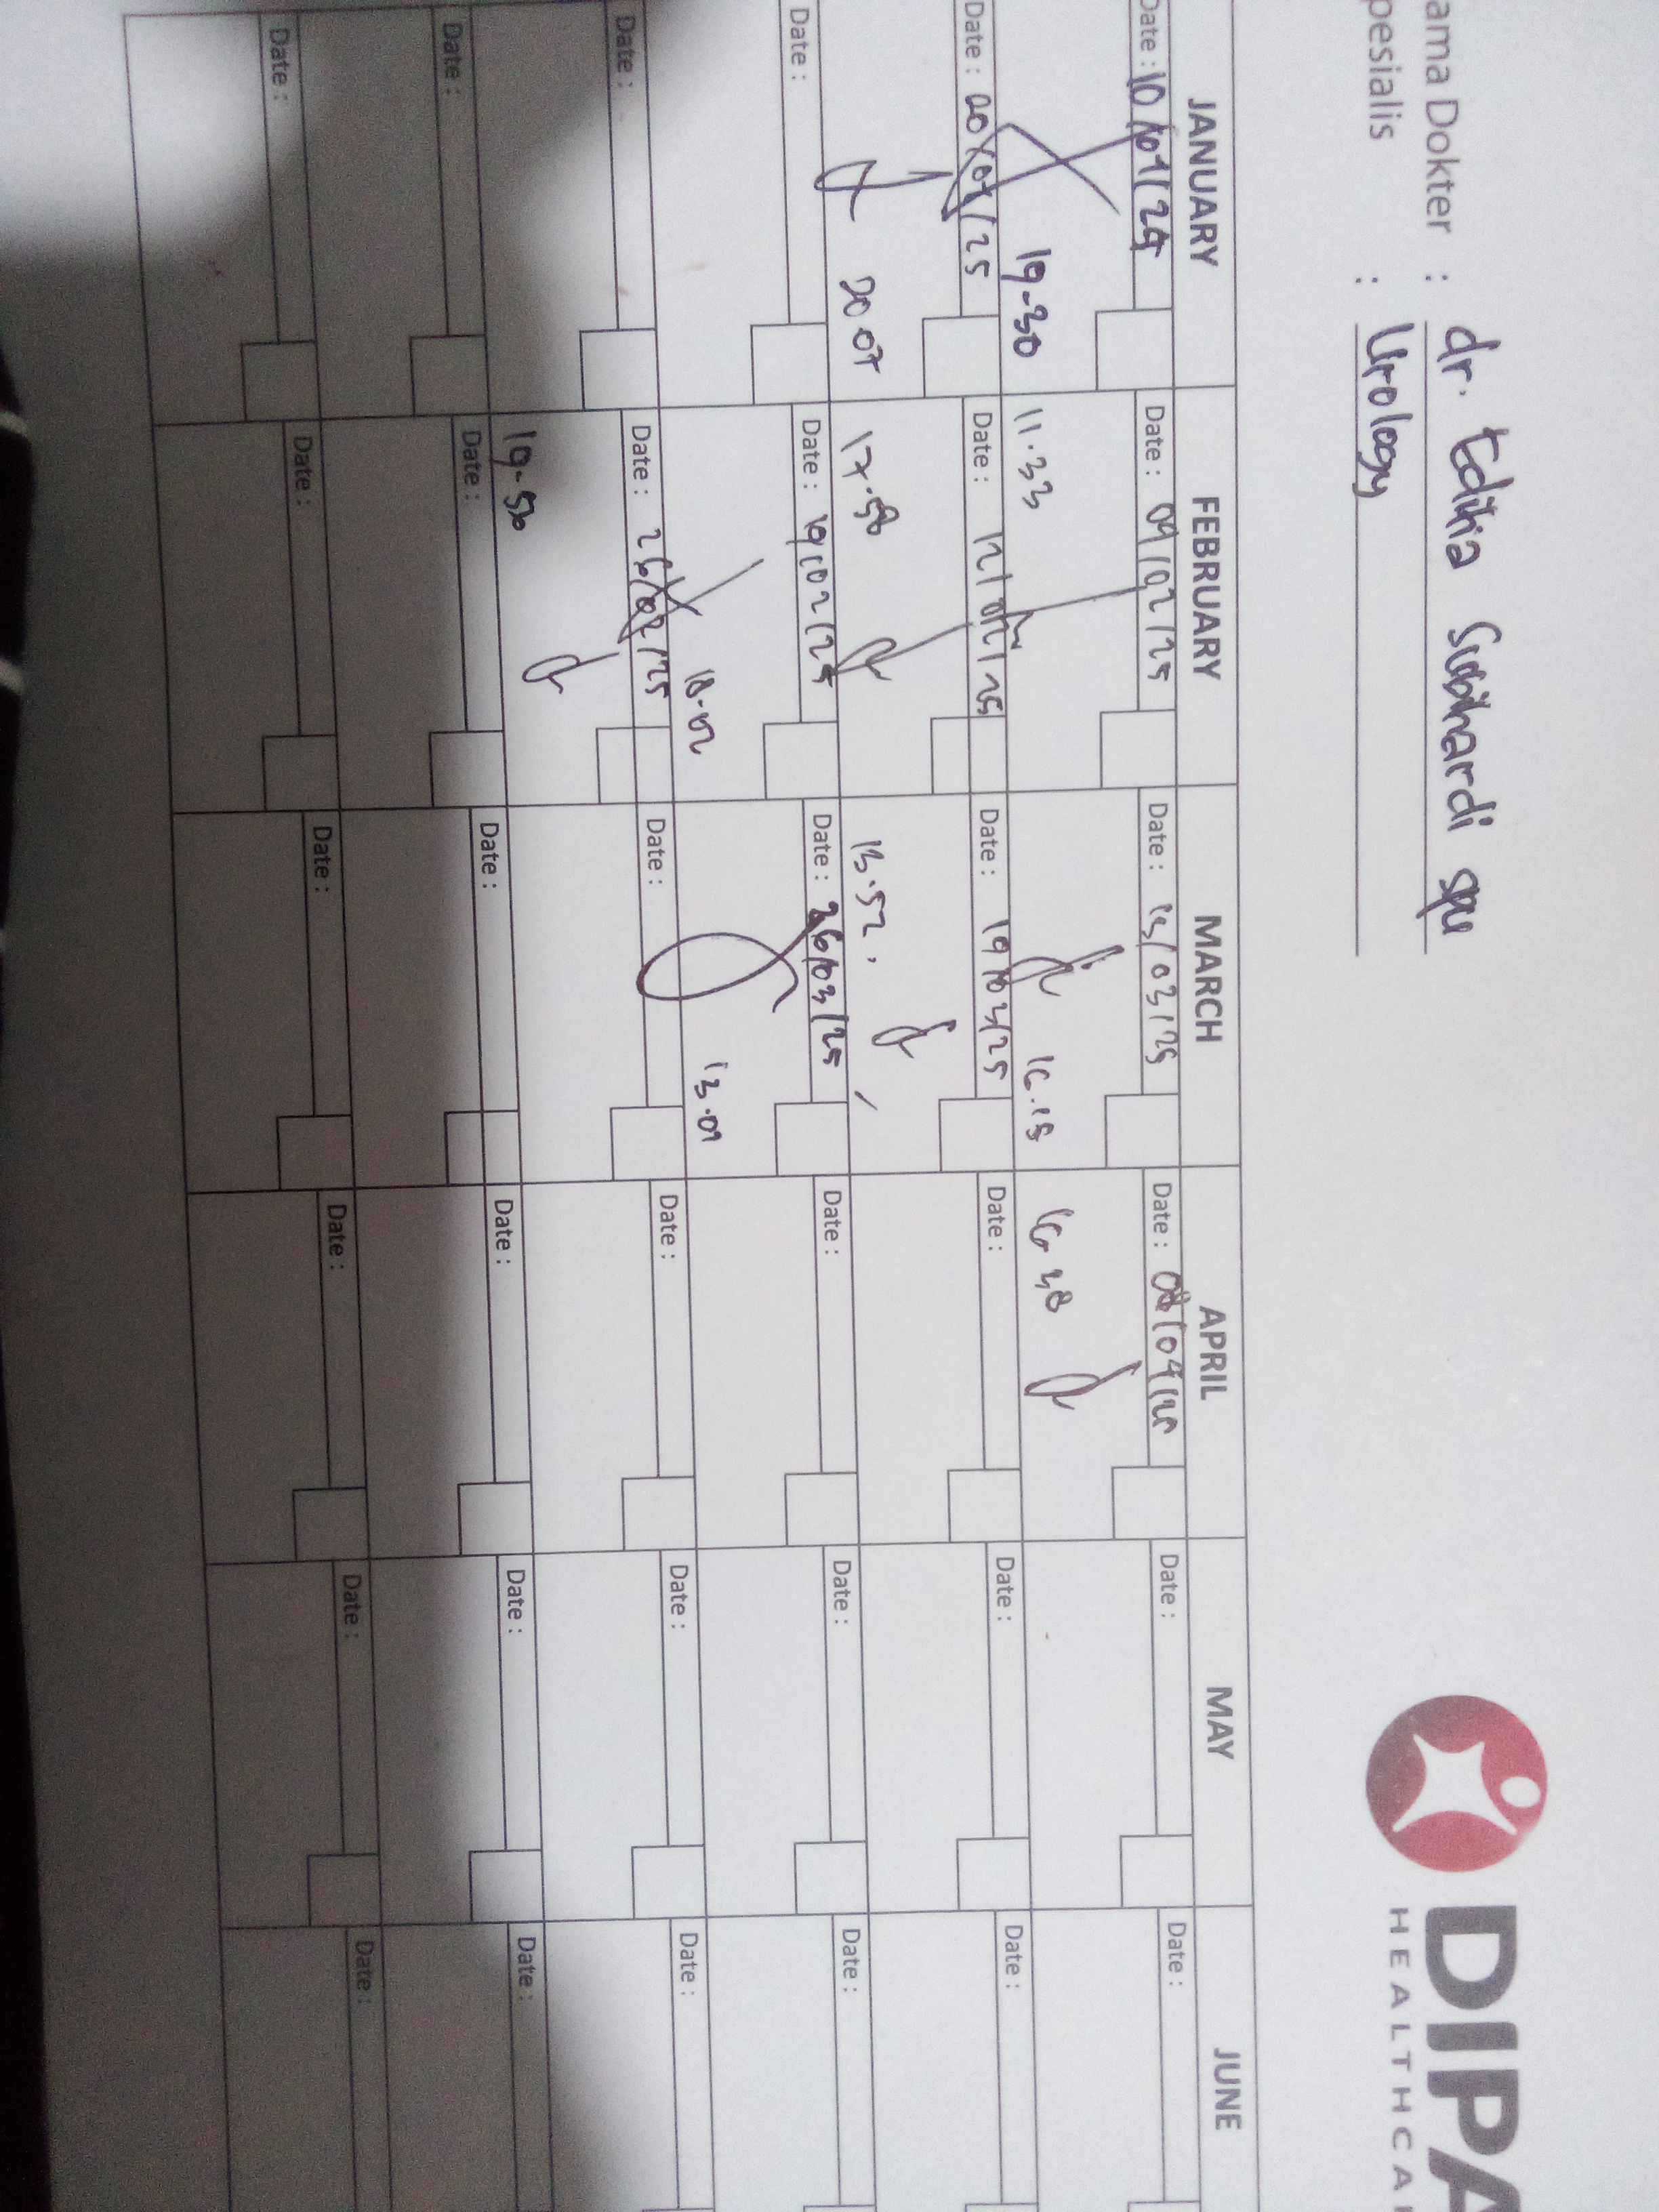 ama Dokter : dr. Editia Subihardi spu
pesialis : Urology
DIPA
HEALTHCA
JANUARY FEBRUARY MARCH APRIL MAY JUNE
Date : 10/01/25 Date : 04/02/25 Date : 13/03/25 Date : 08/04/25 Date : Date :
19-30 11.33 16.15 16.38
Date : 20/01/25 Date : 12/02/25 Date : 19/03/25 Date : Date : Date :
20.07 17.58 13.52
Date : Date : 19/02/25 Date : 26/03/25 Date : Date : Date :
18.02 13.09
Date : Date : 26/02/25 Date : Date : Date : Date :
19-50
Date : Date : Date : Date : Date : Date :
Date : Date : Date : Date : Date : Date :